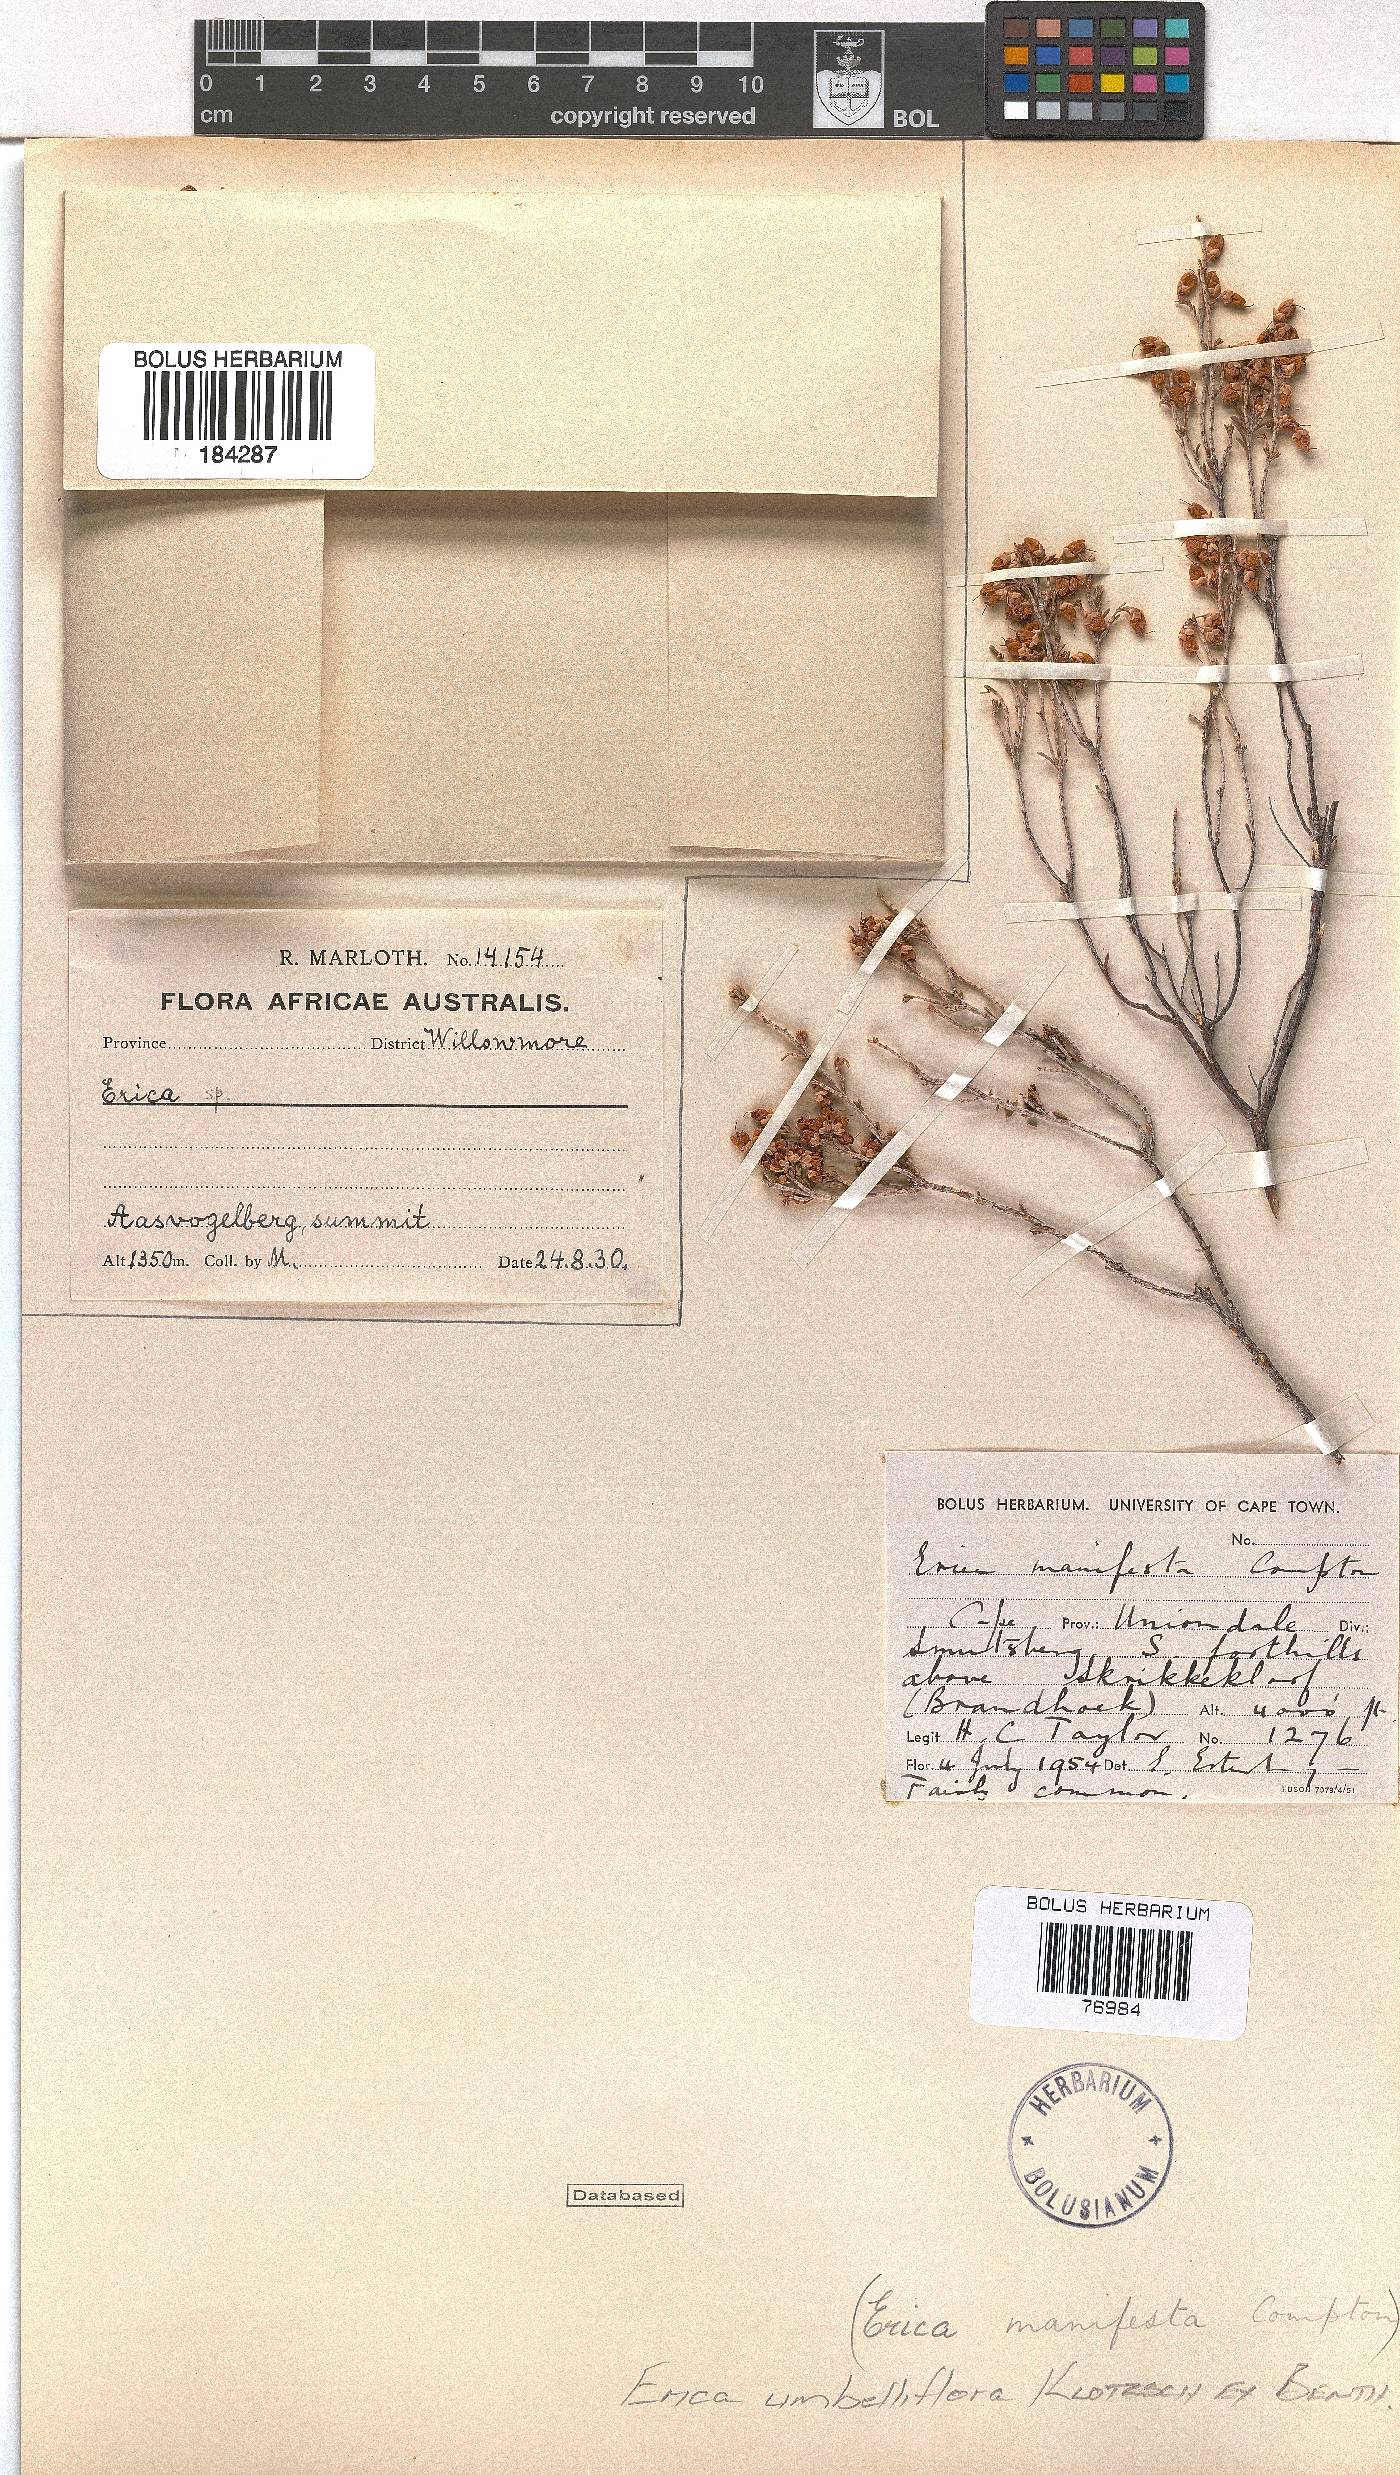 0 1 2 3 4 5 6 7 8 9 10
cm
copyright reserved
BOL
BOLUS HERBARIUM
184287
R. MARLOTH. No. 14154
FLORA AFRICAE AUSTRALIS.
Province District Willowmore
Erica sp.
Aasvogelberg, summit
Alt 1350 m. Coll. by M. Date 24.8.30.
BOLUS HERBARIUM. UNIVERSITY OF CAPE TOWN.
No.
Erica manifesta Compton
Cape Prov.: Uniondale Div.:
Smutsberg S. foothills
above Skrikkekloof
(Brandhoek) Alt. 4000 ft.
Legit H. C. Taylor No. 1276
Flor. 4 July 1954 Det. E.
Fairly common.
7079/4/51
BOLUS HERBARIUM
76984
HERBARIUM
BOLUSIANUM
Databased
(Erica manifesta Compton)
Erica umbelliflora KLOTZSCH EX BENTH.